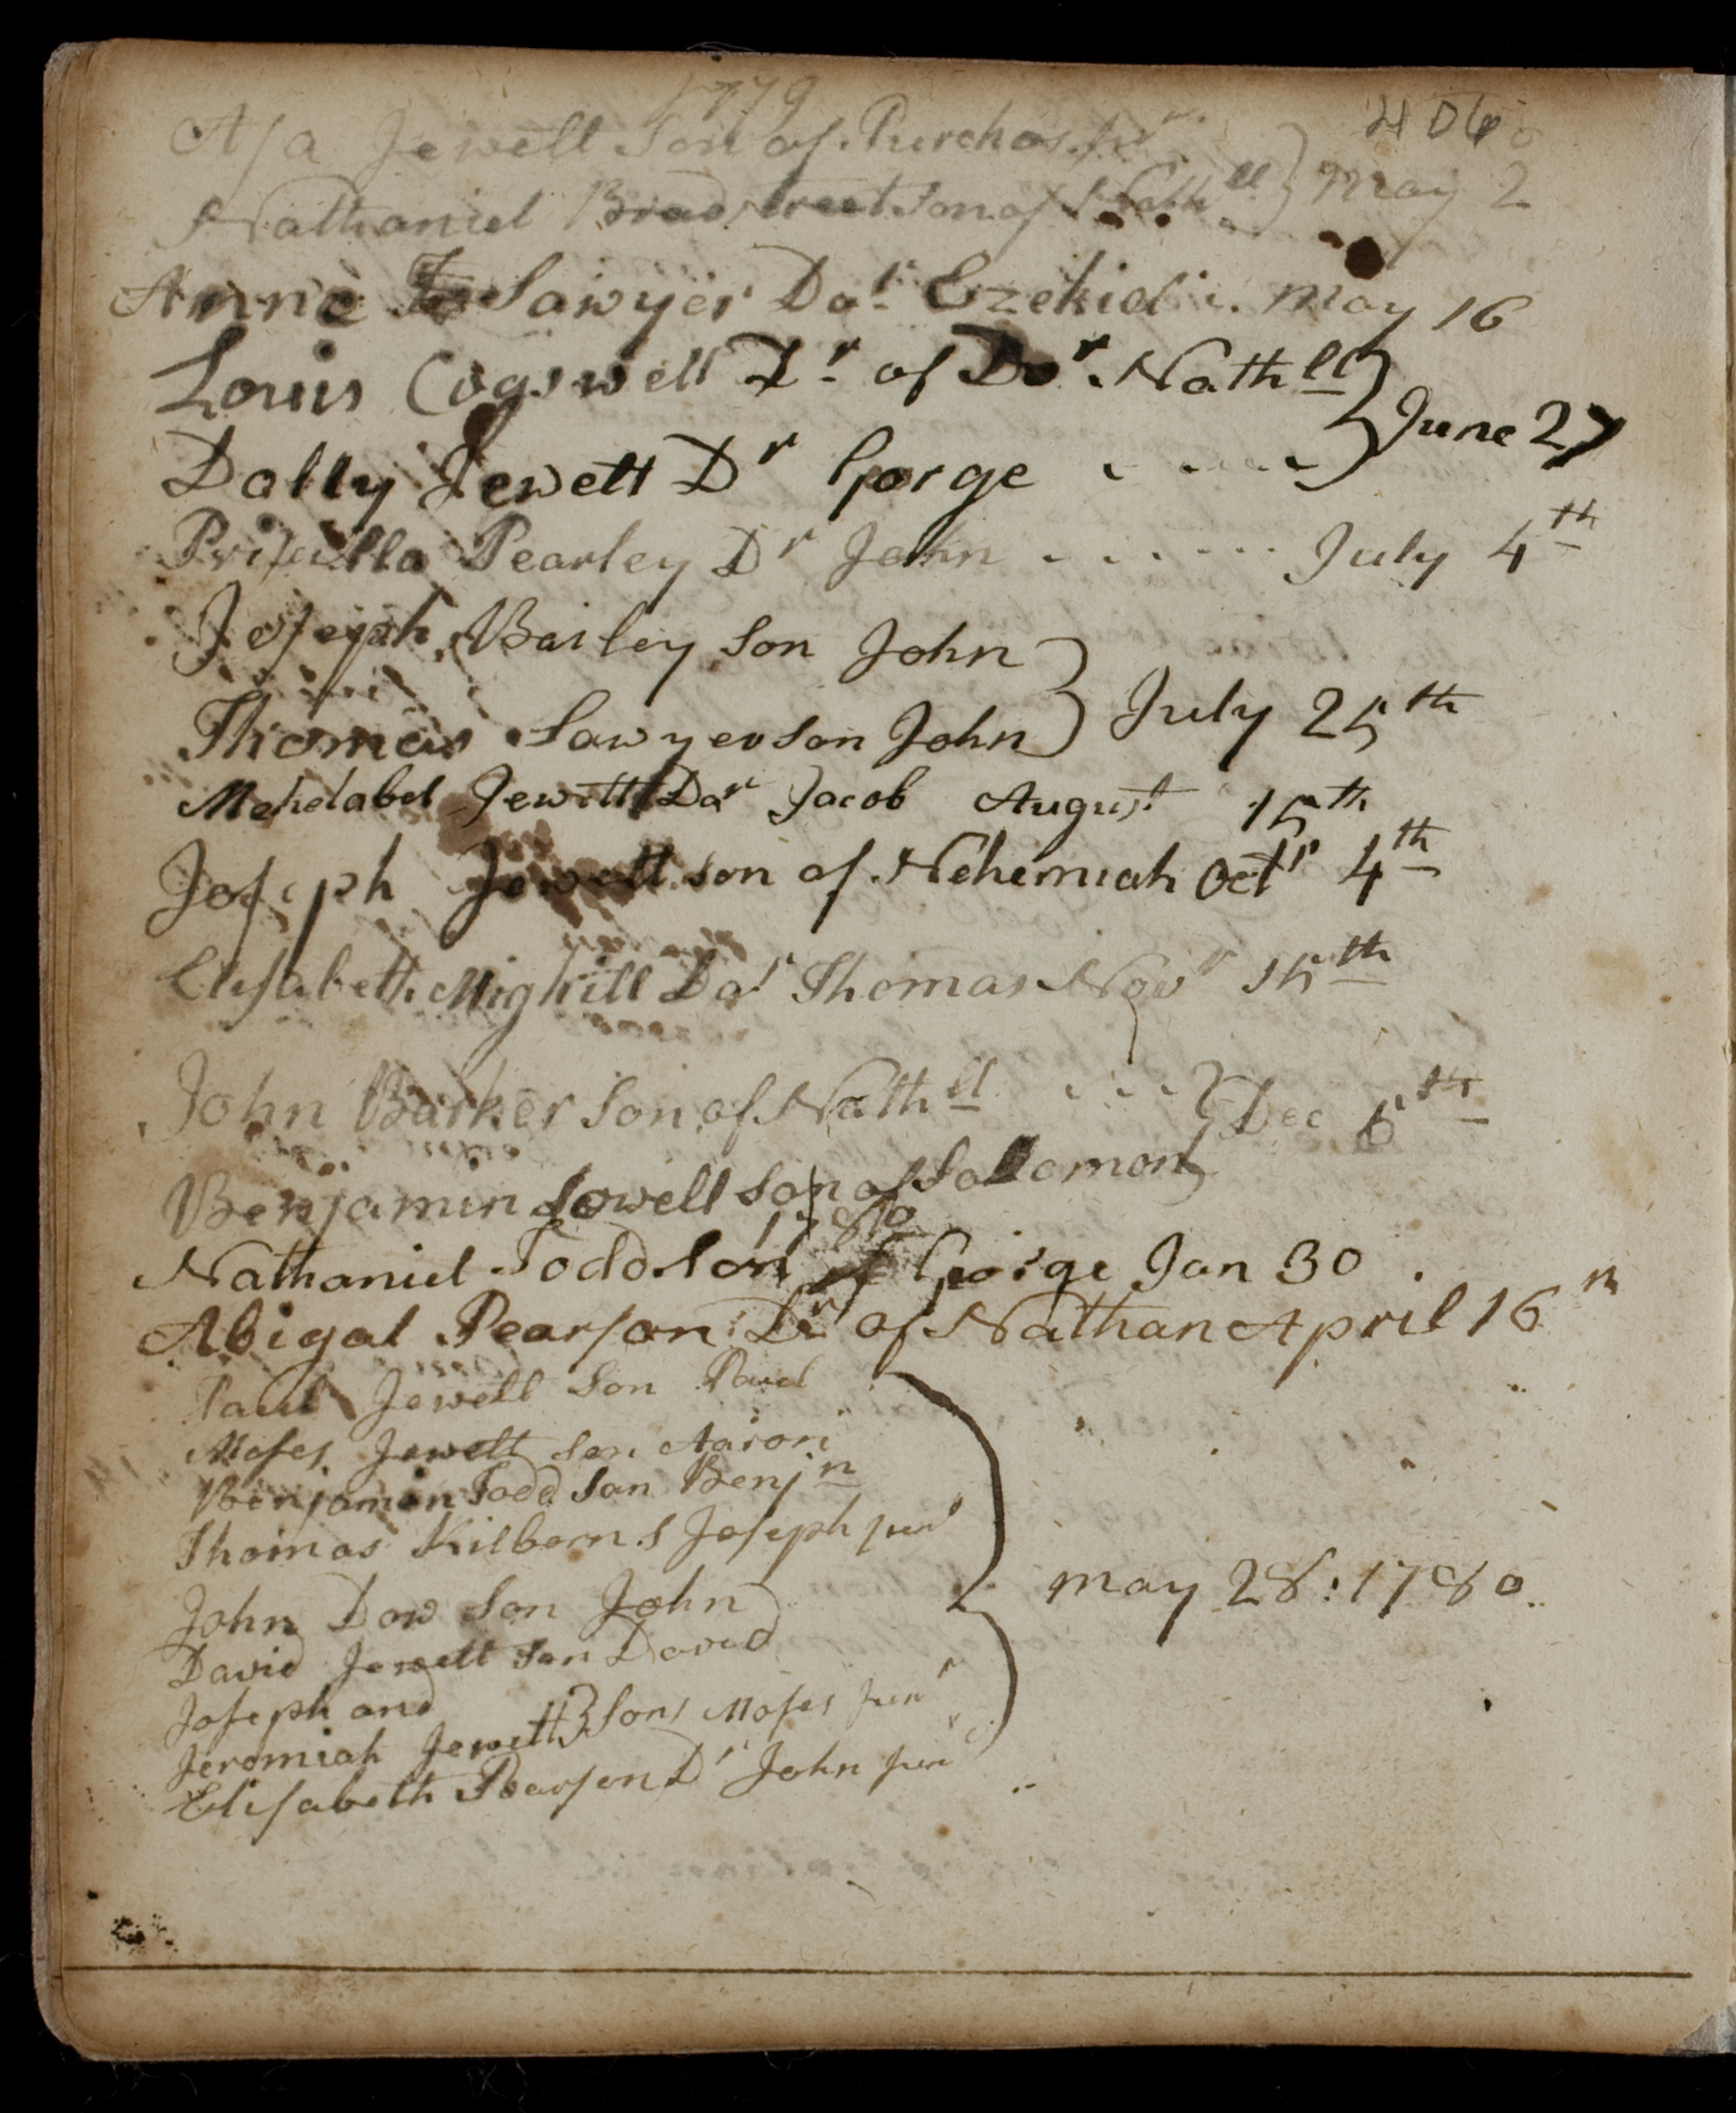 1779
406
Asa Jewett Son of Purchas Jur
Nathaniel Bradstreet Son of Nathll } May 2
Anne Sawyer Dar Ezekiel May 16
Louis Cogswell Dr of Dor Nathll
Dolly Jewett Dr Gorge } June 27
Prisulla Pearley Dr John July 4th
Joseph Bailey Son John
Thomas Sawyer son John } July 25th
Mehetabel Jewett Dar Jacob August 15th
Joseph Jewett son of Nehemiah Octr 4th
Elisabeth Mighill Dar Thomas Novr 15th
John Barker Son of Nathll } Dec 5th
Benjamin Lowell Son of Solomon
1780
Nathaniel Todd Son of Gorge Jan 30
Abigal Pearson Dr of Nathan April 16th
Paul Jewett Son Paul
Moses Jewett Son Aaron
Benjamin Todd Son Benjn
Thomas Kilborn S Joseph junr
John Dow Son John } may 28: 1780
David Jewett Son David
Joseph and
Jeremiah Jewett } Sons Moses junr
Elisabeth Pearson Dr John junr